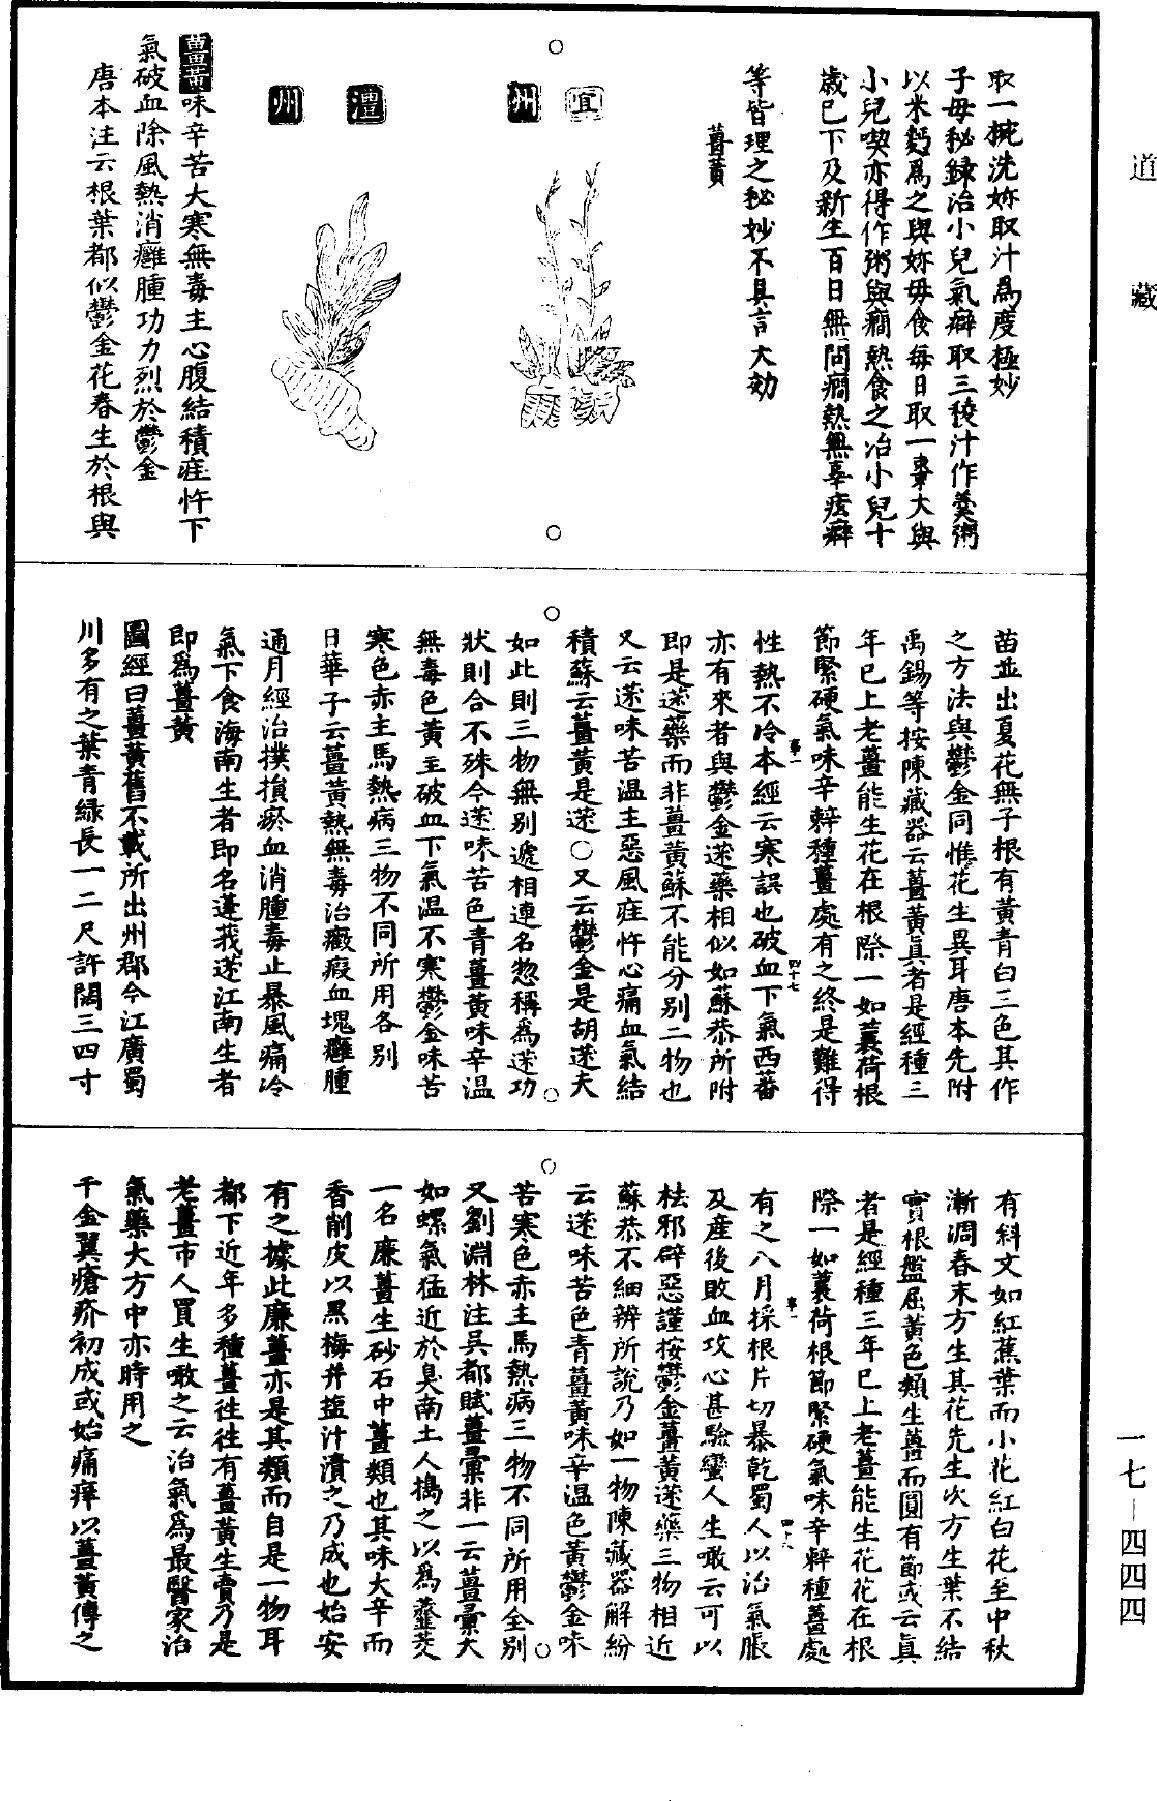 道藏
取一椀洗妳取汁爲度極妙
子母秘錄治小兒氣癖取三稜汁作羹粥
以米麪爲之與妳母食每日取一棗大與
小兒喫亦得作粥與癎熱食之治小兒十
歲已下及新生百日無問癎熱無辜痃癖
等皆理之秘妙不具言大効
薑黃
宜州
澧州
薑黃味辛苦大寒無毒主心腹結積疰忤下
氣破血除風熱消癰腫功力烈於鬱金
唐本注云根葉都似鬱金花春生於根與
苗並出夏花無子根有黃青白三色其作
之方法與鬱金同惟花生異耳唐本先附
禹錫等按陳藏器云薑黃真者是經種三
年已上老薑能生花在根際一如蘘荷根
節緊硬氣味辛辣種薑處有之終是難得
性熱不冷本經云寒誤也破血下氣西蕃
亦有來者與鬱金蒁藥相似如蘇恭所附
即是蒁藥而非薑黃蘇不能分別二物也
又云蒁味苦温主惡風疰忤心痛血氣結
積蘇云薑黃是蒁○又云鬱金是胡蒁夫
如此則三物無別遞相連名惣稱爲蒁功
狀則合不殊今蒁味苦色青薑黃味辛温
無毒色黃主破血下氣温不寒鬱金味苦
寒色赤主馬熱病三物不同所用各別
日華子云薑黃熱無毒治癥瘕血塊癰腫
通月經治撲損瘀血消腫毒止暴風痛冷
氣下食海南生者即名蓬莪蒁江南生者
即爲薑黃
圖經曰薑黃舊不載所出州郡今江廣蜀
川多有之葉青緑長一二尺許闊三四寸
有斜文如紅蕉葉而小花紅白花至中秋
漸凋春末方生其花先生次方生葉不結
實根盤屈黃色類生薑而圓有節或云真
者是經種三年已上老薑能生花花在根
際一如蘘荷根節緊硬氣味辛辣種薑處
有之八月採根片切暴乾蜀人以治氣脹
及産後敗血攻心甚驗蠻人生噉云可以
祛邪辟惡謹按鬱金薑黃蒁藥三物相近
蘇恭不細辨所說乃如一物陳藏器解紛
云蒁味苦色青薑黃味辛温色黃鬱金味
苦寒色赤主馬熱病三物不同所用全別
又劉淵林注吳都賦薑彙非一云薑彙大
如螺氣猛近於臭南土人擣之以爲虀茭
一名廉薑生砂石中薑類也其味大辛而
香削皮以黑梅并盐汁漬之乃成也始安
有之據此廉薑亦是其類而自是一物耳
都下近年多種薑往往有薑黃生賣乃是
老薑市人買生噉之云治氣爲最醫家治
氣藥大方中亦時用之
千金翼瘡疥初成或始痛痒以薑黃傅之
一七－四四四